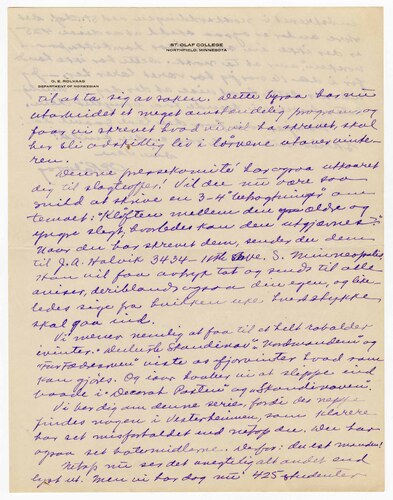 ST. OLAF COLLEGE
NORTHFIELD, MINNESOTA
O. E. ROLVAAG
DEPARTMENT OF NORWEGIAN
til at ta sig av saken. Dette byraa har nu
utarbeidet et meget anstændelig program og
faar vi skrevet hvad vi vil ha skrevet, skal
her bli adskillig liv i leirene utover vinter-
ren.
Denne pressekomité har ogsaa utkaaret
dig til slagtoffer. Vil du nu være saa
snild at skrive en 3-4 om
temaet: "Kløften mellem den ældre og
yngre slegt, hvorledes kan den utjævnes?"
Naar du har skrevet dem, sender du dem
til J. A. Holvik 3434 - 11th Ave. S. Minneapolis.
Han vil faa avtryk tat og sende til alle
aviser, deriblandt ogsaa din egen, og like-
ledes sige fra hvilken uke hvert stykke
skal gaa ind.
Vi mener nemlig at faa til et helt rabalder
ivinter. "Duluth Skandinav", "Normanden" og
"Fædrenes" viste os ifjorvinter hvad som
kan gjøres. Og iaar haaber vi at slippe ind
baade i "Decorah Posten" og "Skandinaven."
Vi ber dig om denne serie, fordi der neppe
findes nogen i Vesterheimen, som klarere
har set misforholdet end netop du. Du har
ogsaa set botemidlerne. Derfor: du est manden!
Netop nu ser det unegtelig alt andet end
lyst ut. Men vi har dog nu 425 studenter